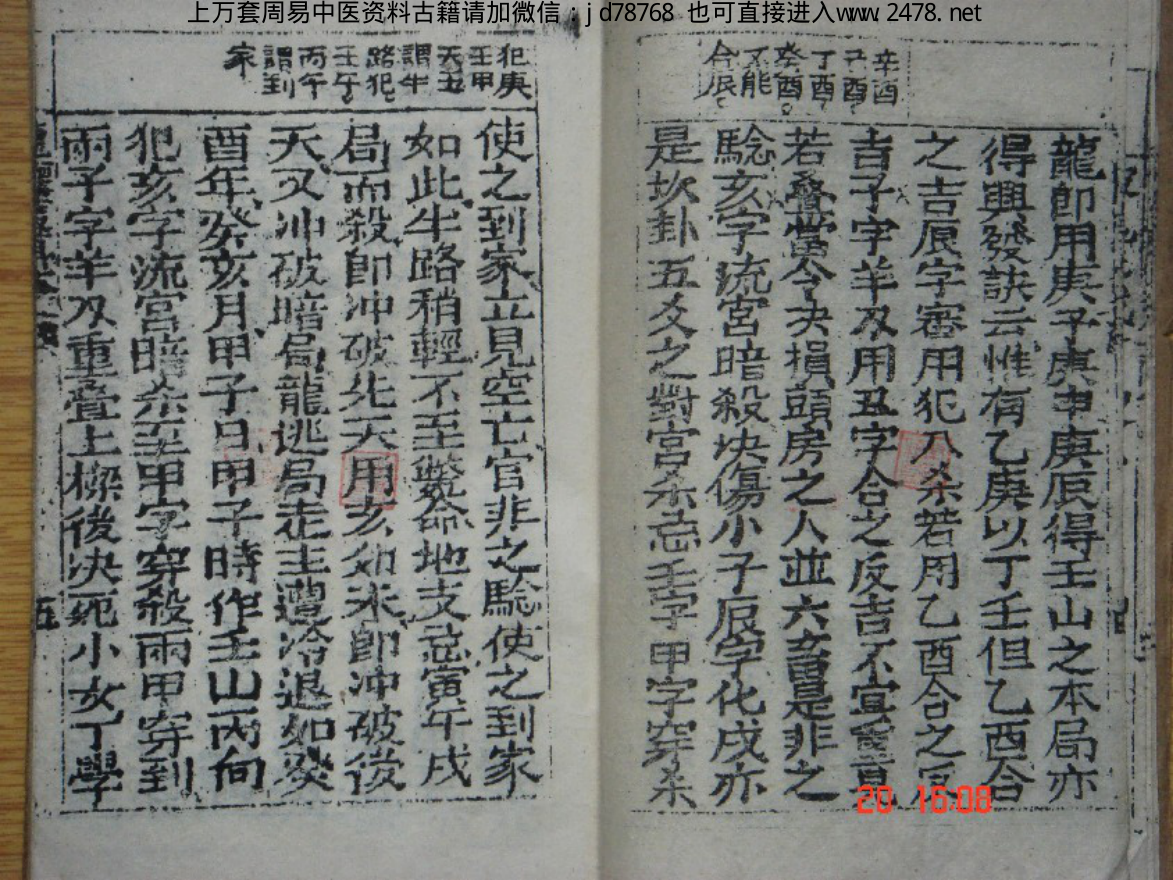 上万套周易中医资料古籍请加微信：jd78768 也可直接进入www.2478.net
辛酉
酉
丁酉
癸酉
不能
合辰
龍即用庚子庚申庚辰得壬山之本局亦
得興發訣云惟有乙庚以丁壬但乙酉合
之吉辰字審用犯八杀若用乙酉合之
吉子字羊刃用丑字合之反吉不宜
若叠當令决損頭房之人並六畜是非之
騐亥字流宫暗殺块傷小子辰字化戌亦
是坎卦五爻之對宫杀忌壬字甲字穿杀
犯庚
壬甲
天丑
謂半
路犯
壬午
丙午
謂到
家
使之到家立見空亡官非之騐使之到家
如此半路稍輕不至斃命地支忌寅午戌
局而殺即冲破先天用亥卯未即冲破後
天又冲破暗局龍逃局走主遭冷退如癸
酉年癸亥月甲子日甲子時作壬山丙向
犯亥字流宫暗杀至甲字穿殺兩甲穿到
兩子字羊刃重叠上樑後决死小女丁學
五
20 16:08